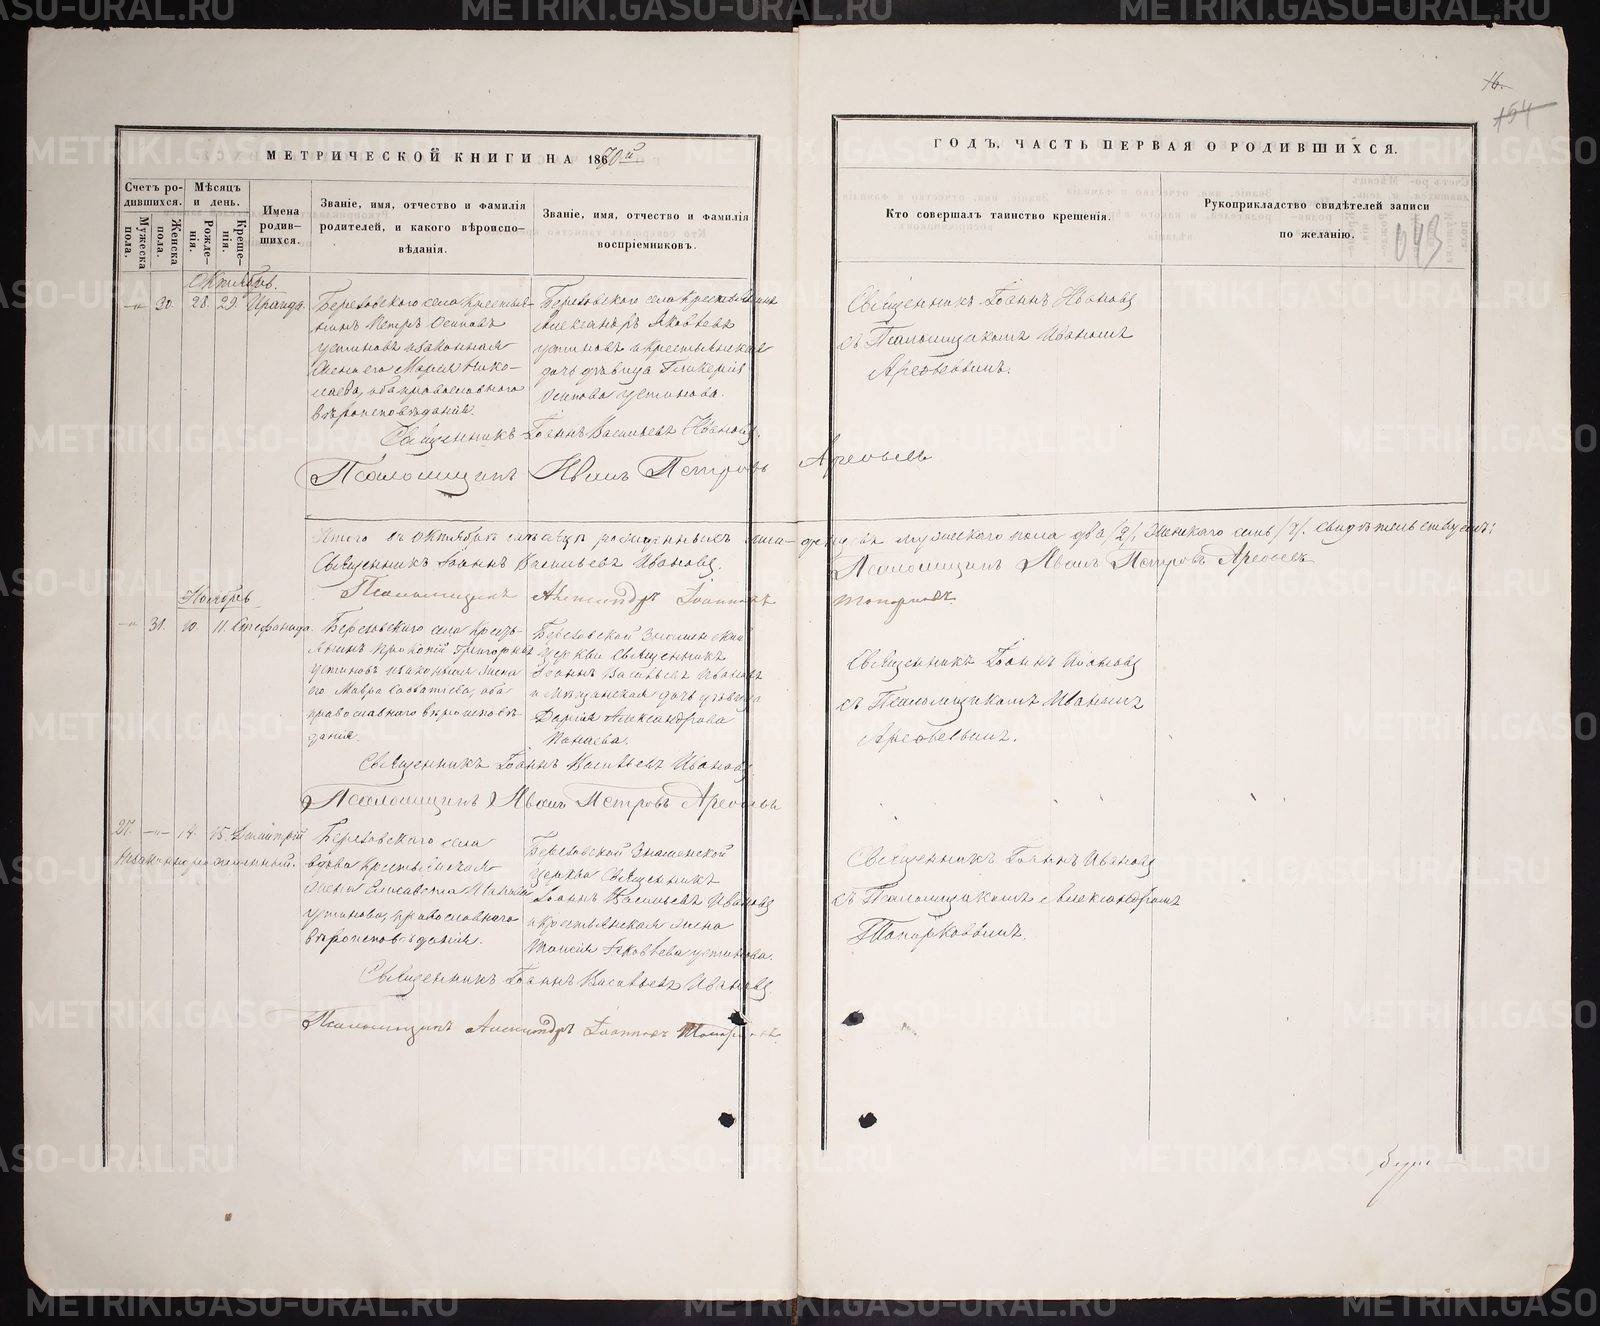 METRIKI.GASO-URAL.RU
16.
154
МЕТРИЧЕСКОЙ КНИГИ НА 1870й
ГОДЪ, ЧАСТЬ ПЕРВАЯ О РОДИВШИХСЯ.
Счетъ родившихся.
Мужеска пола.
Женска пола.
Мѣсяцъ и день.
Рожденія.
Крещенія.
Имена родившихся.
Званіе, имя, отчество и фамилія
родителей, и какого вѣроисповѣданія.
Званіе, имя, отчество и фамилія
воспріемниковъ.
Кто совершалъ таинство крещенія.
Рукоприкладство свидѣтелей записи
по желанію.
043
Октябрь.
30. 28. 29. Ираида.
Березовскаго села крестья-
нинъ Петръ Осиповъ
Устиновъ и законная
жена его Марія Нико-
лаева, оба православнаго
вѣроисповѣданія.
Березовскаго села крестьянинъ
Александръ Яковлевъ
Устиновъ и крестьянская
дочь дѣвица Гликерія
Осипова Устинова.
Священникъ Іоаннъ Ивановъ
съ Псаломщикомъ Иваномъ
Арефьевымъ.
Священникъ Іоаннъ Васильевъ Ивановъ.
Псаломщикъ Иванъ Петровъ Арефьевъ
Итого въ октябрѣ мѣсяцѣ рожденныхъ мужескаго пола два /2/, женскаго семь /7/. Свидѣтельствуемъ:
Священникъ Іоаннъ Васильевъ Ивановъ.
Псаломщикъ Иванъ Петровъ Арефьевъ
Псаломщикъ Александръ Іоанновъ Топорковъ
Ноябрь
31. 10. 11. Стефанида.
Березовскаго села кресть-
янинъ Прокопій Григорьевъ
Устиновъ и законная жена
его Мавра Савватіева, оба
православнаго вѣроисповѣ-
данія.
Березовской Знаменской
церкви Священникъ
Іоаннъ Васильевъ Ивановъ
и Мѣщанская дочь дѣвица
Дарія Александрова
Панаева.
Священникъ Іоаннъ Ивановъ
съ Псаломщикомъ Иваномъ
Арефьевымъ.
Священникъ Іоаннъ Васильевъ Ивановъ
Псаломщикъ Иванъ Петровъ Арефьевъ
27. 14. 15. Димитрій
незаконнорожденный.
Березовскаго села
вдова крестьянская
жена Елисавета Иванова
Устинова, православнаго
вѣроисповѣданія.
Березовской Знаменской
церкви Священникъ
Іоаннъ Васильевъ Ивановъ
и крестьянская жена
Таисія Яковлева Устинова.
Священникъ Іоаннъ Ивановъ
съ Псаломщикомъ Александромъ
Топорковымъ.
Священникъ Іоаннъ Васильевъ Ивановъ.
Псаломщикъ Александръ Іоанновъ Топорковъ